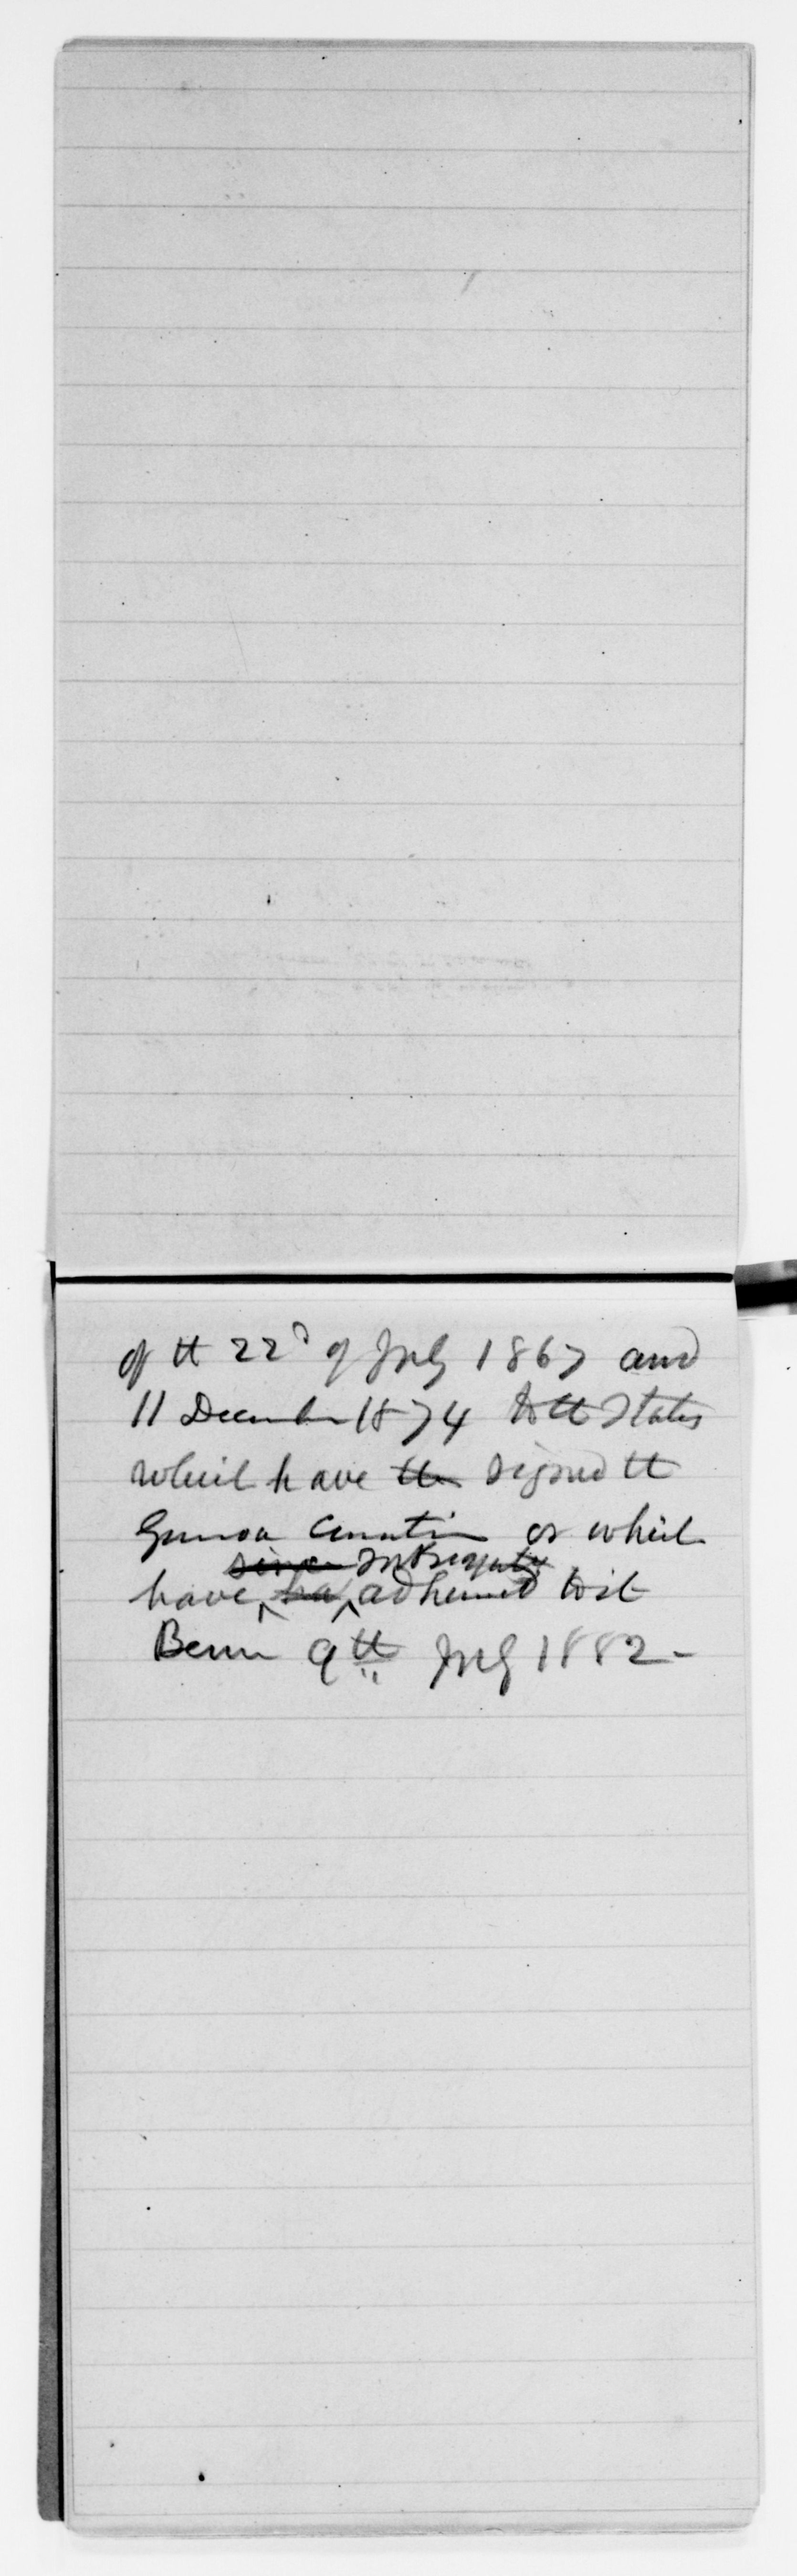 of tt 22d of July 1867 and
11 December 1874 to tt States
which have the signed tt
Geneva Convention or which
since subsequently
have ha adhered to it
Bern 9tt July 1882 -